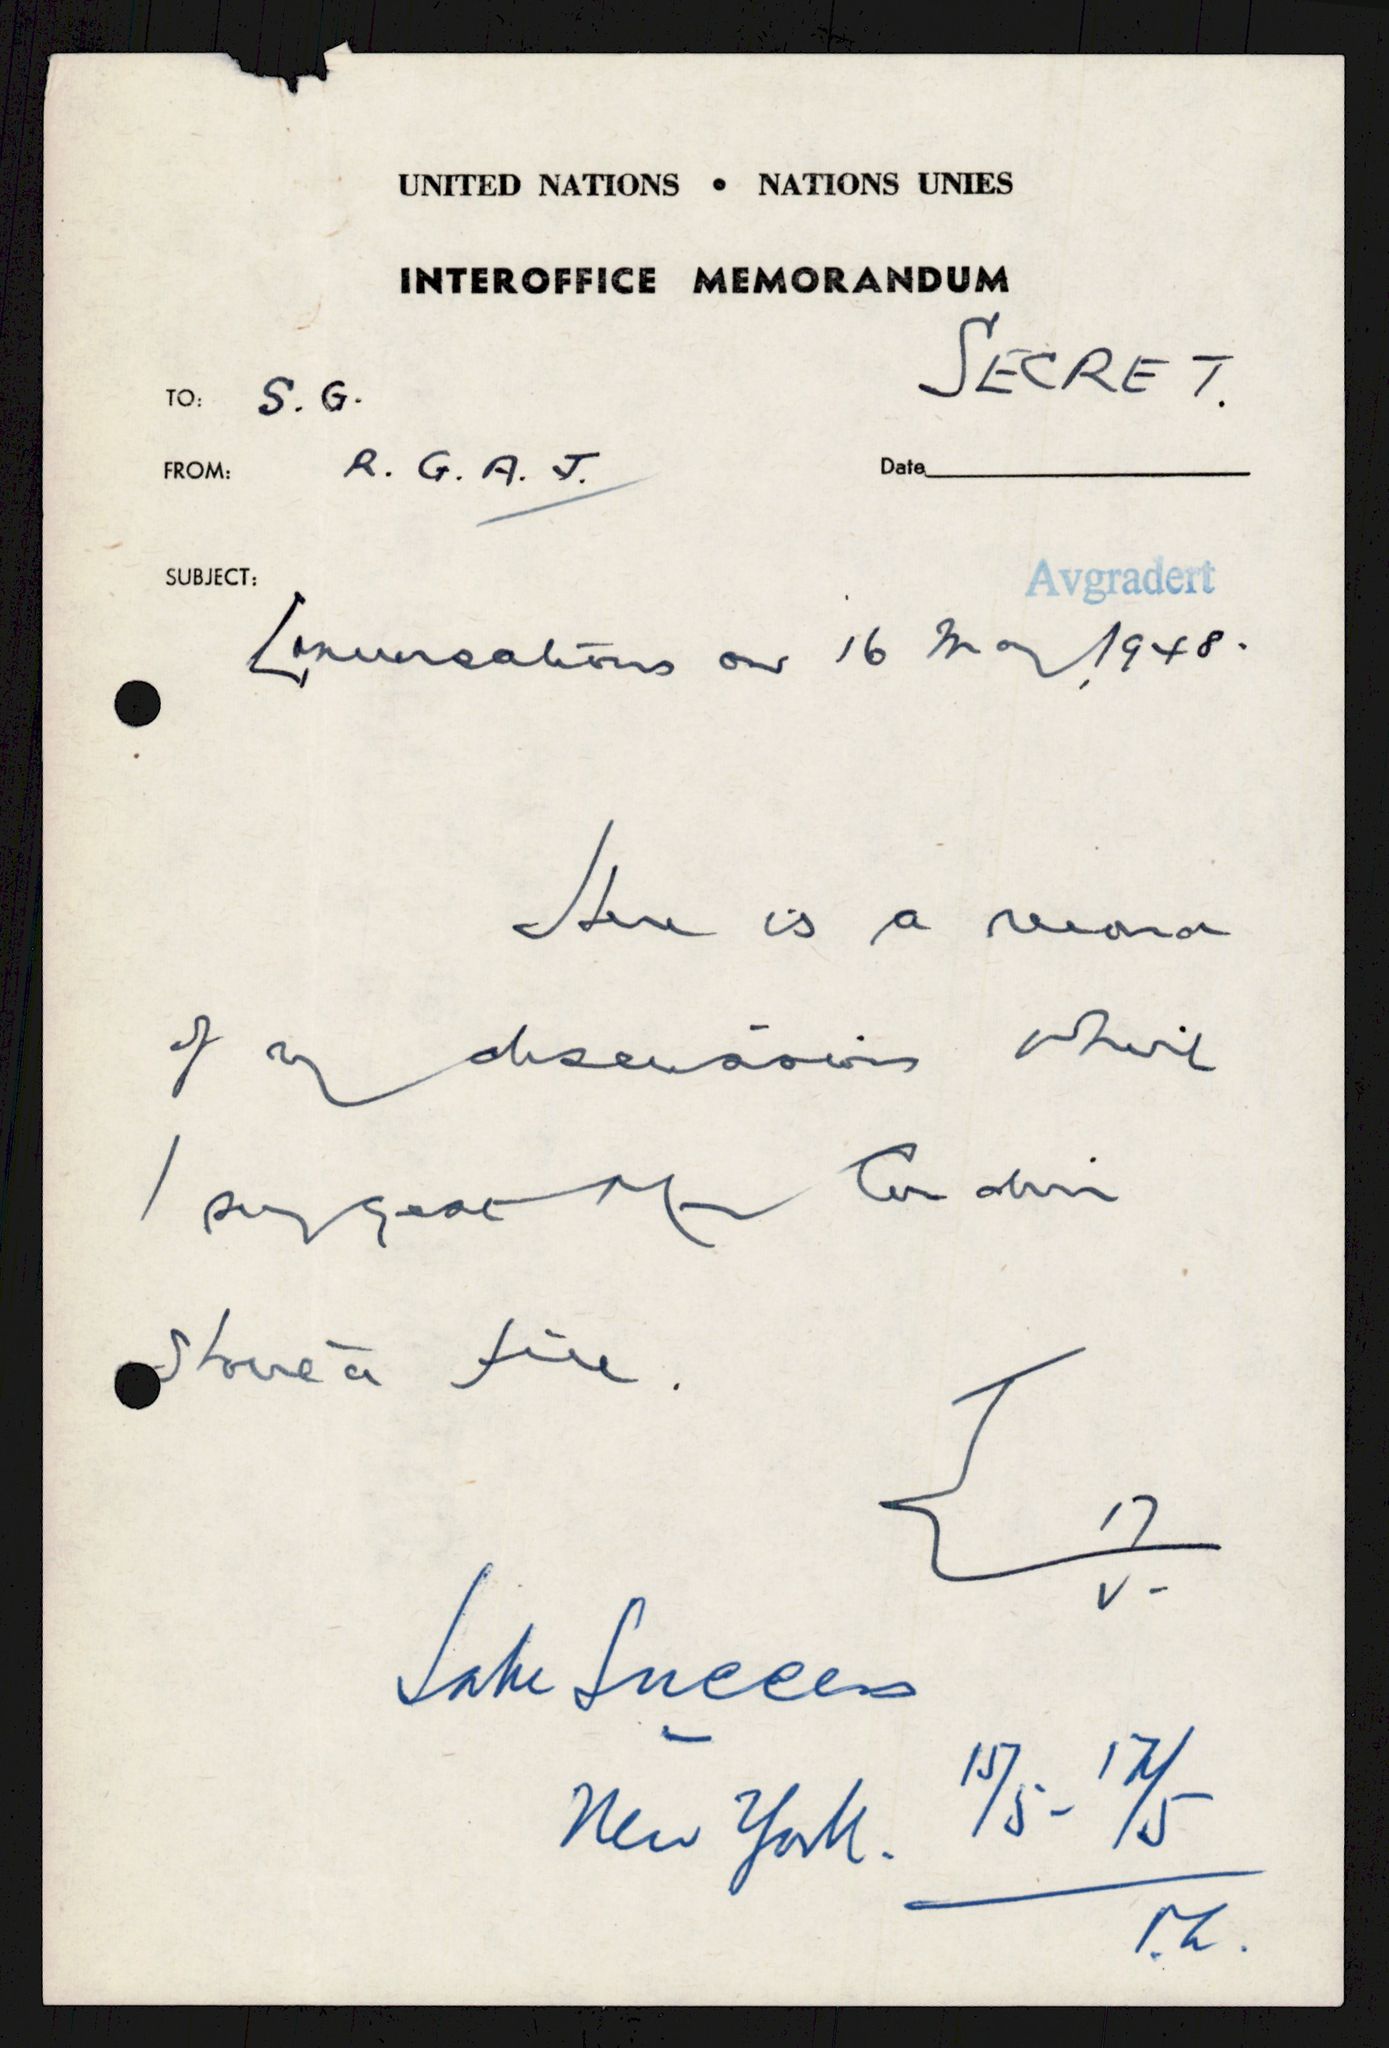 UNITED NATIONS • NATIONS UNIES
INTEROFFICE MEMORANDUM
SECRET.
TO: S. G.
FROM: R. G. A. J.
Date
SUBJECT:
Avgradert
Conversations on 16 May, 1948.
Here is a record
of my discussions which
I suggest Mr Cordier
should file.
J
17
V-
Lake Success
-
New York. 15/5 - 17/5
T.L.